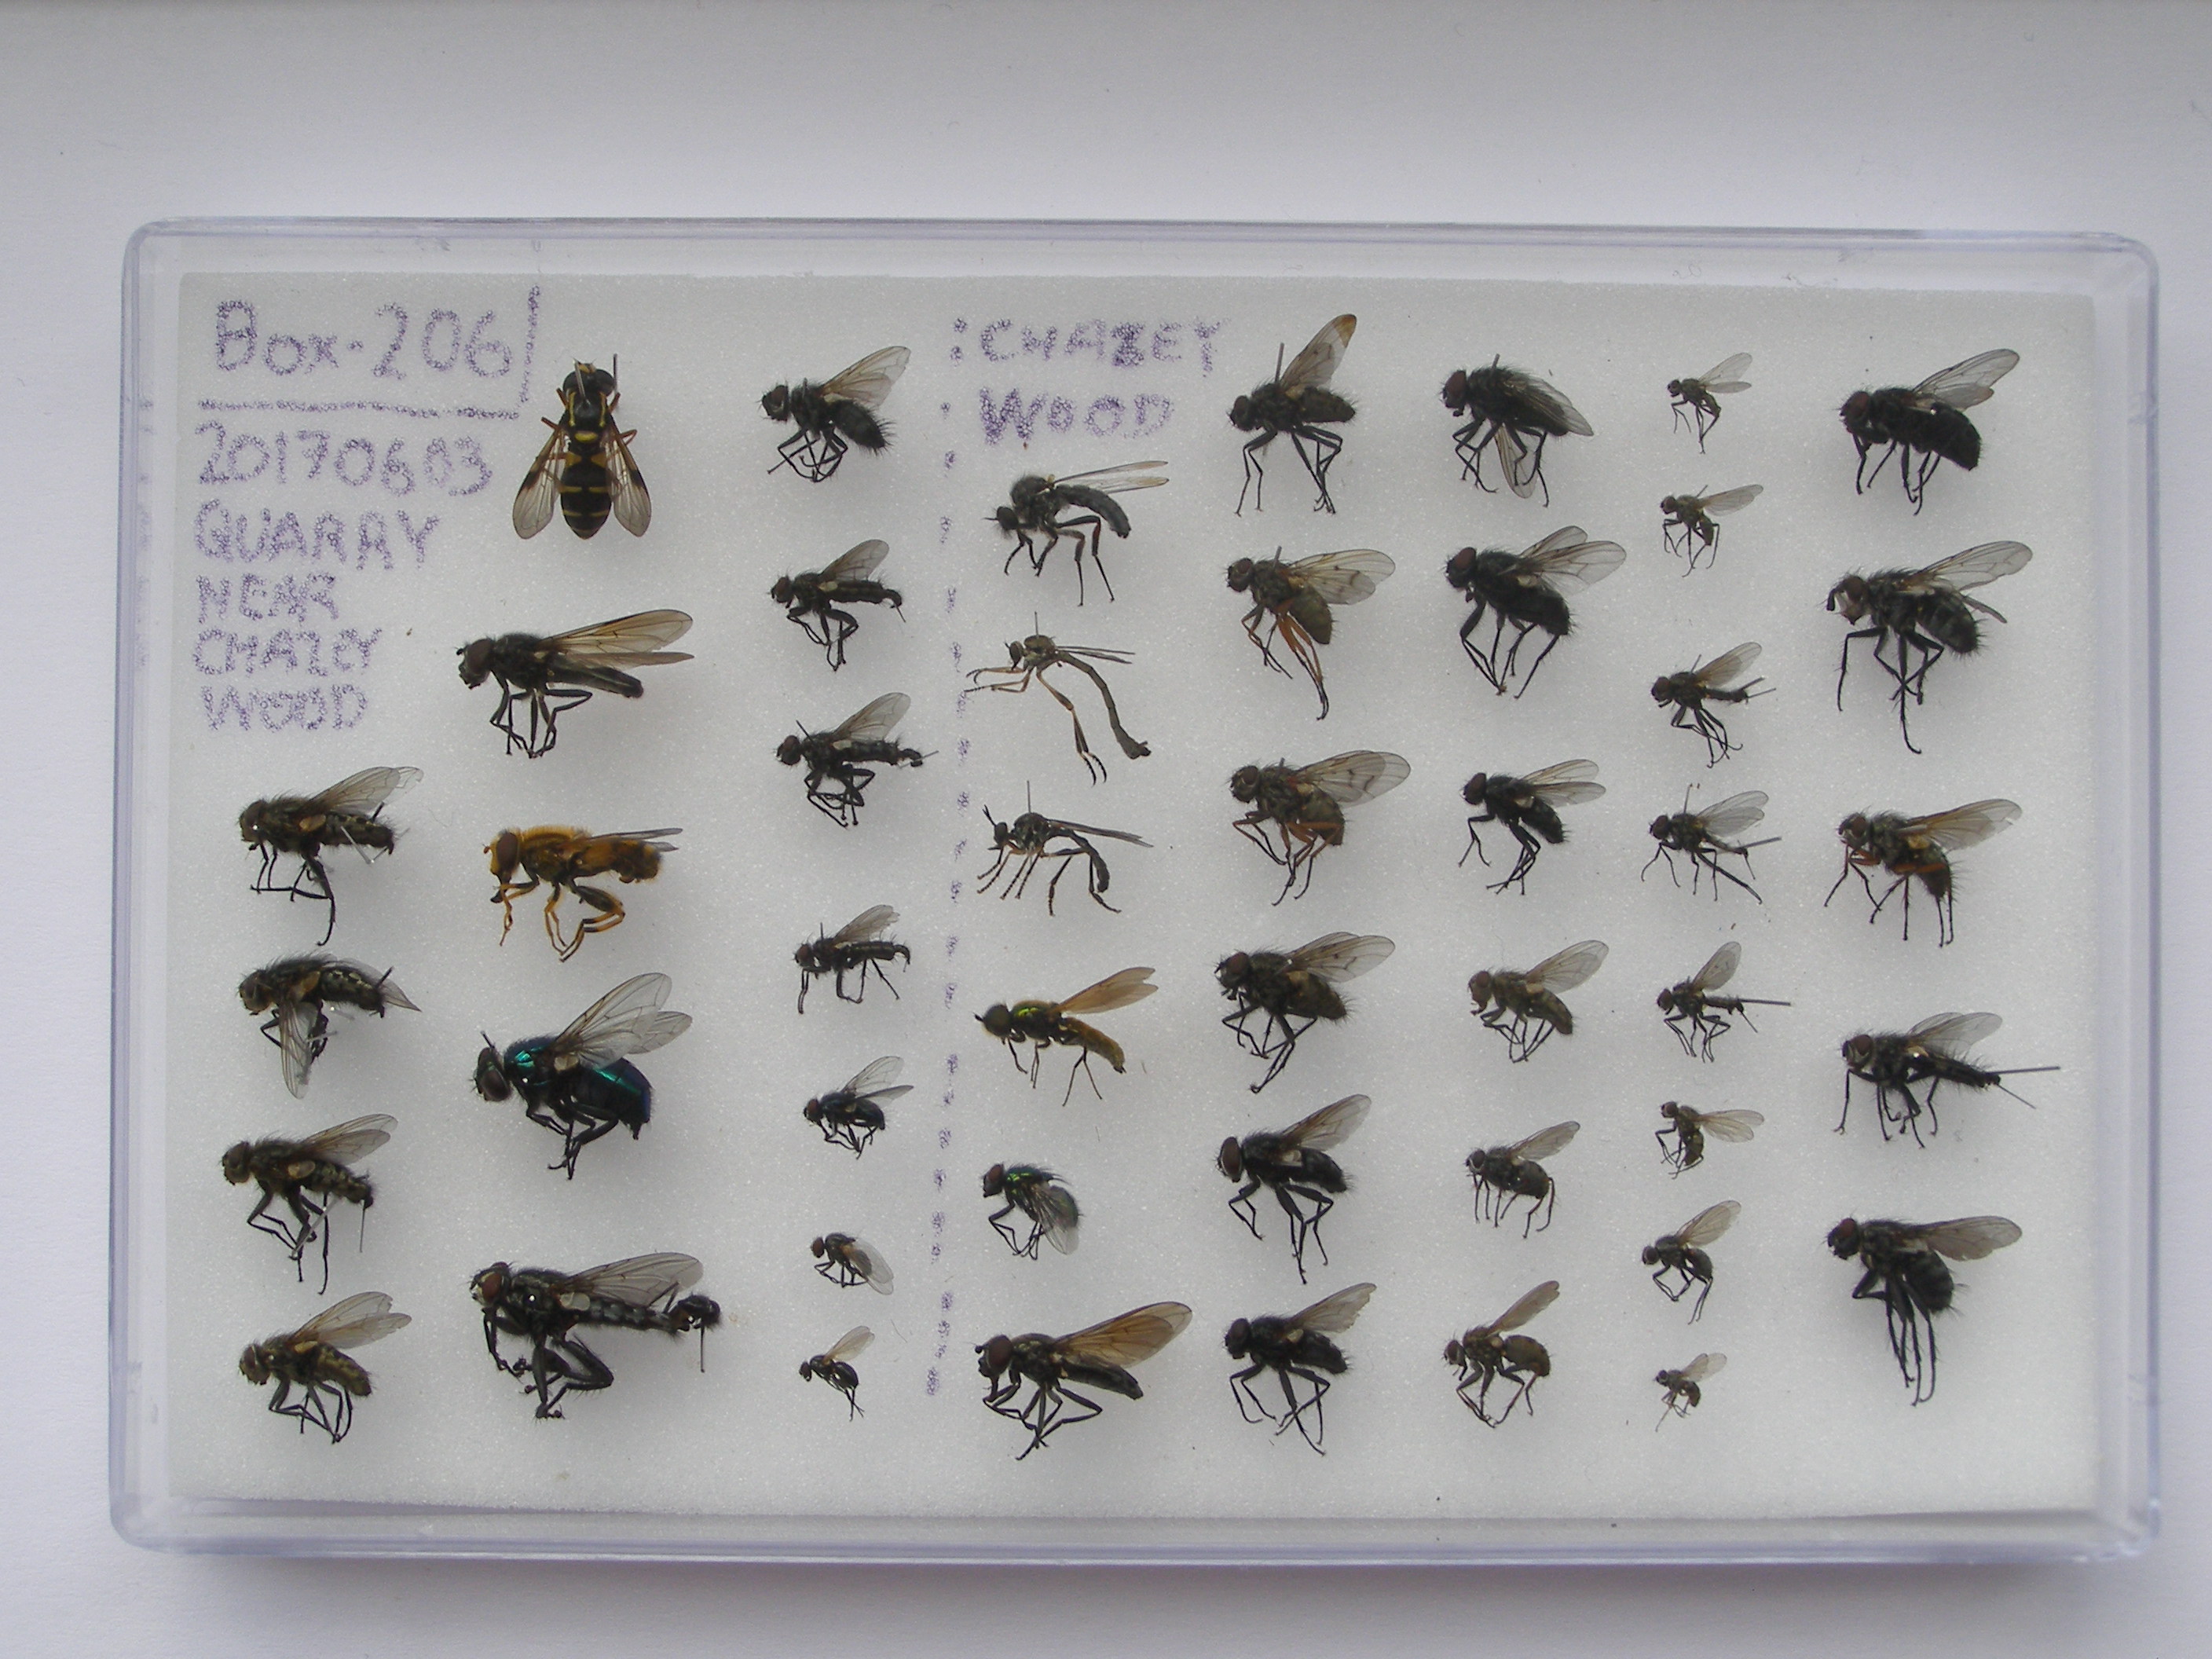 Box-206/
20170603
QUARRY
NEAR
CHAZEY
WOOD
: CHAZEY
WOOD